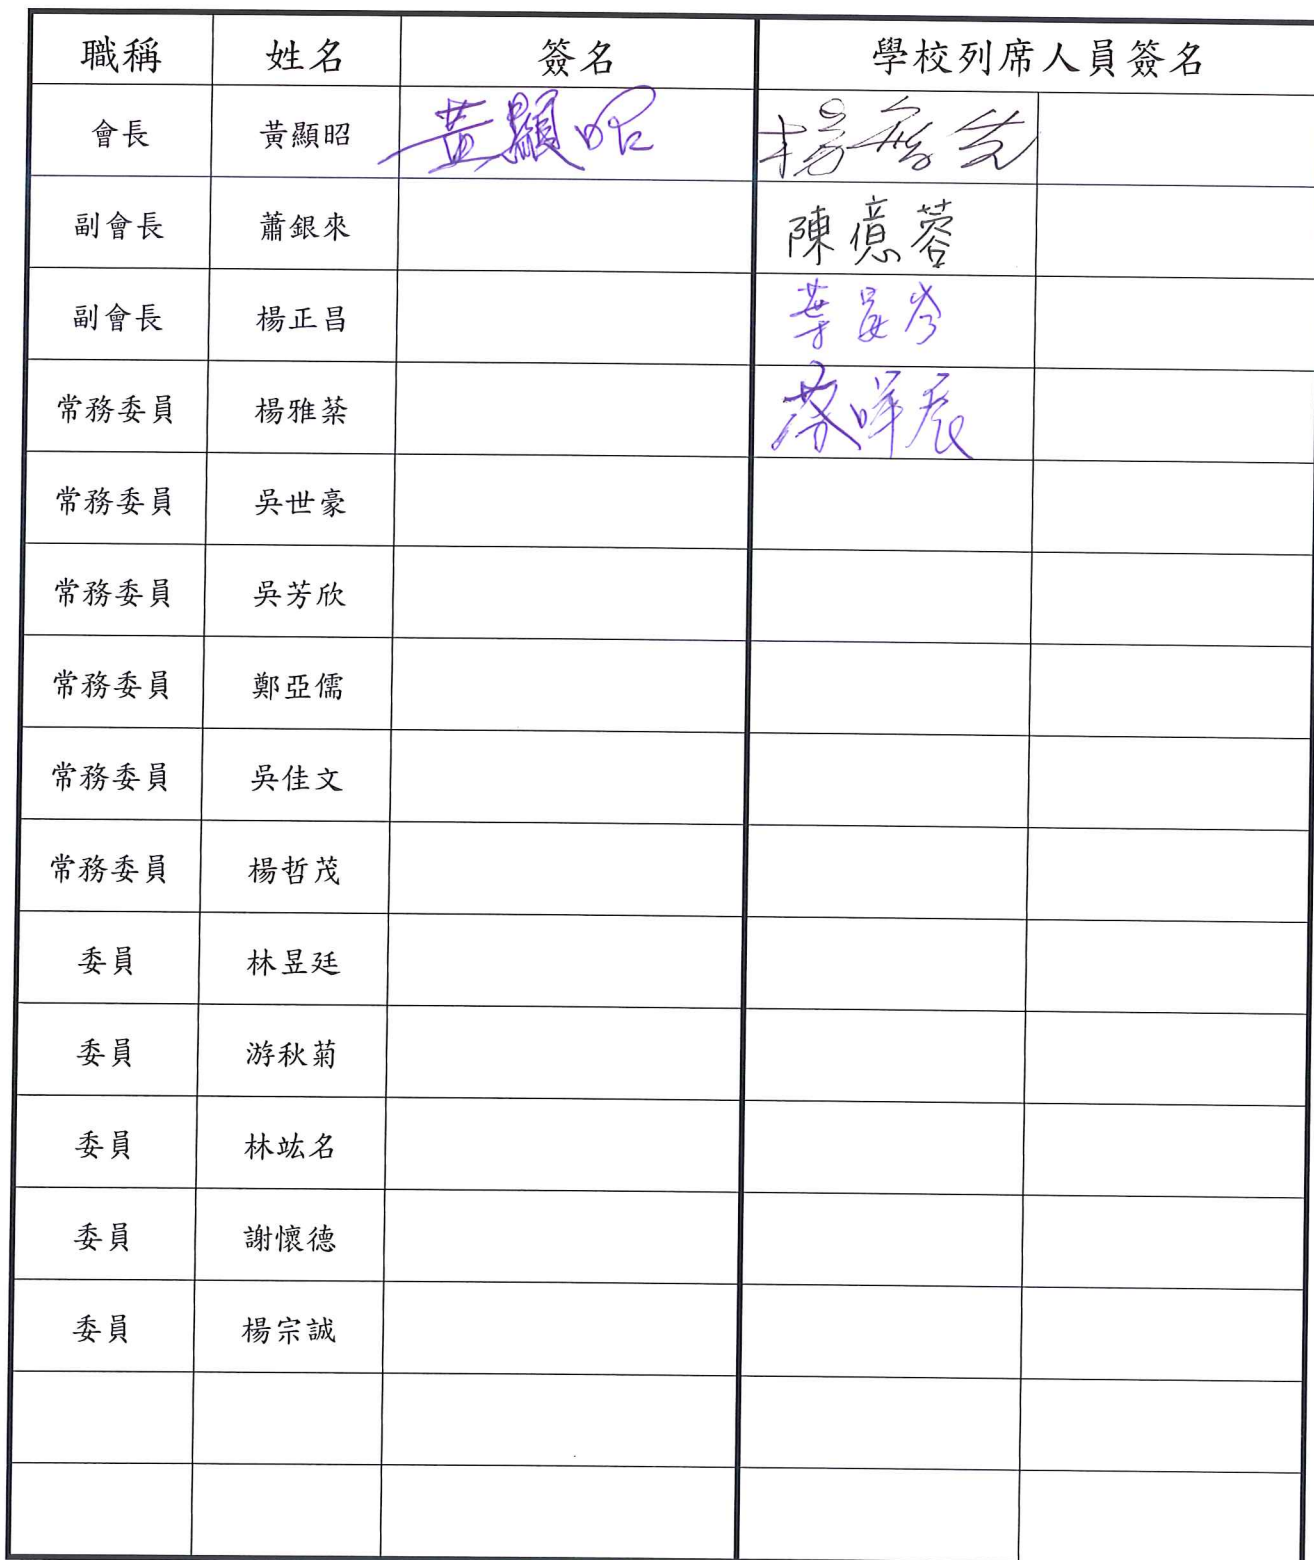 職稱 姓名 簽名 學校列席人員簽名
會長 黃顯昭 黃顯昭 楊
副會長 蕭銀來 陳億蓉
副會長 楊正昌 葉晏岑
常務委員 楊雅棻 蔡暉辰
常務委員 吳世豪
常務委員 吳芳欣
常務委員 鄭亞儒
常務委員 吳佳文
常務委員 楊哲茂
委員 林昱廷
委員 游秋菊
委員 林竑名
委員 謝懷德
委員 楊宗誠